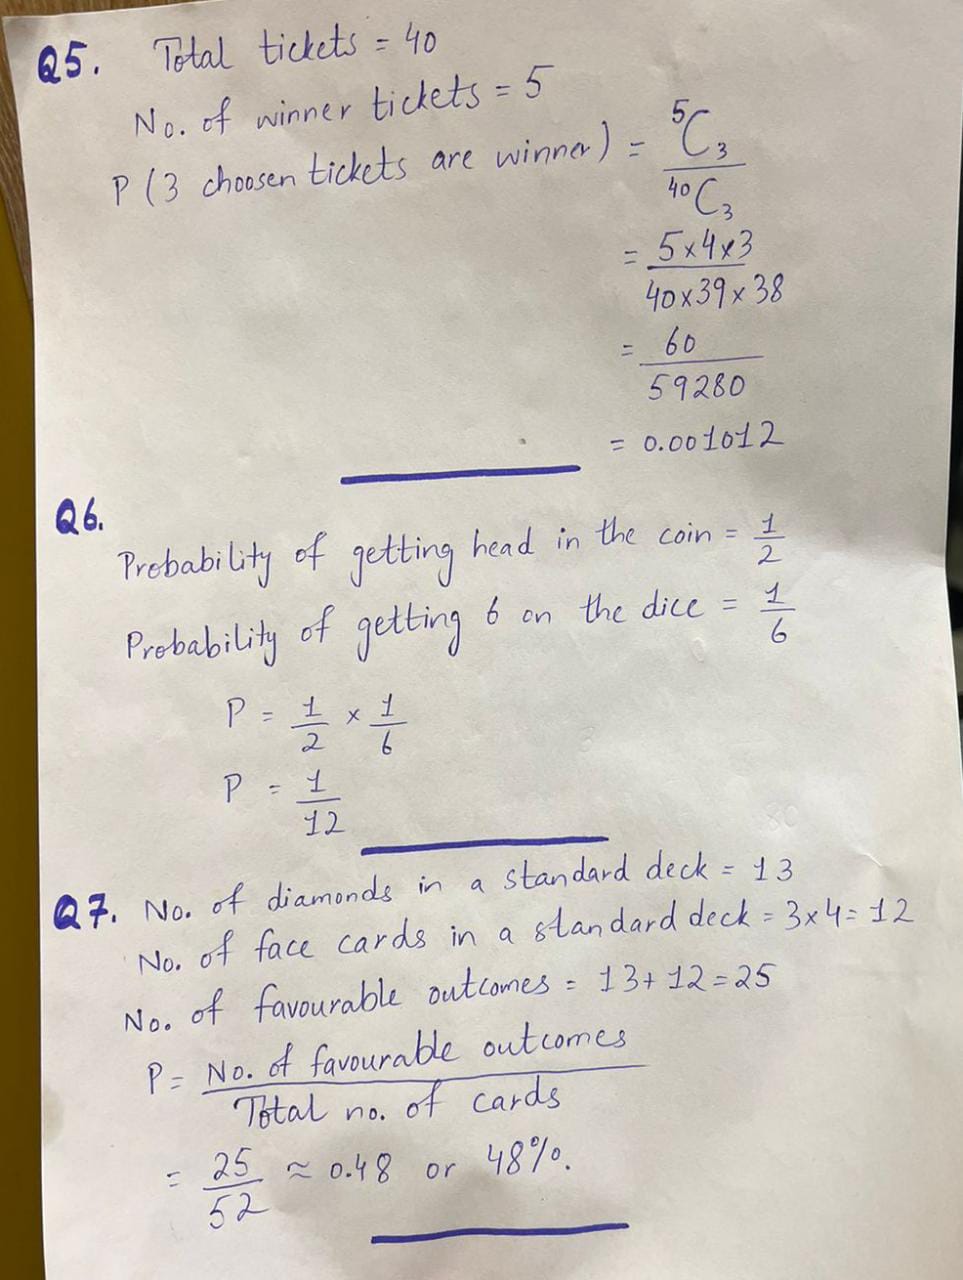 Q5. Total tickets = 40
No. of winner tickets = 5
P (3 choosen tickets are winner) = ⁵C₃ / ⁴⁰C₃
= 5x4x3 / 40x39x38
= 60 / 59280
= 0.001012
Q6.
Probability of getting head in the coin = 1/2
Probability of getting 6 on the dice = 1/6
P = 1/2 x 1/6
P = 1/12
Q7. No. of diamonds in a standard deck = 13
No. of face cards in a standard deck = 3x4= 12
No. of favourable outcomes = 13+12=25
P = No. of favourable outcomes / Total no. of cards
= 25/52 ≈ 0.48 or 48%.